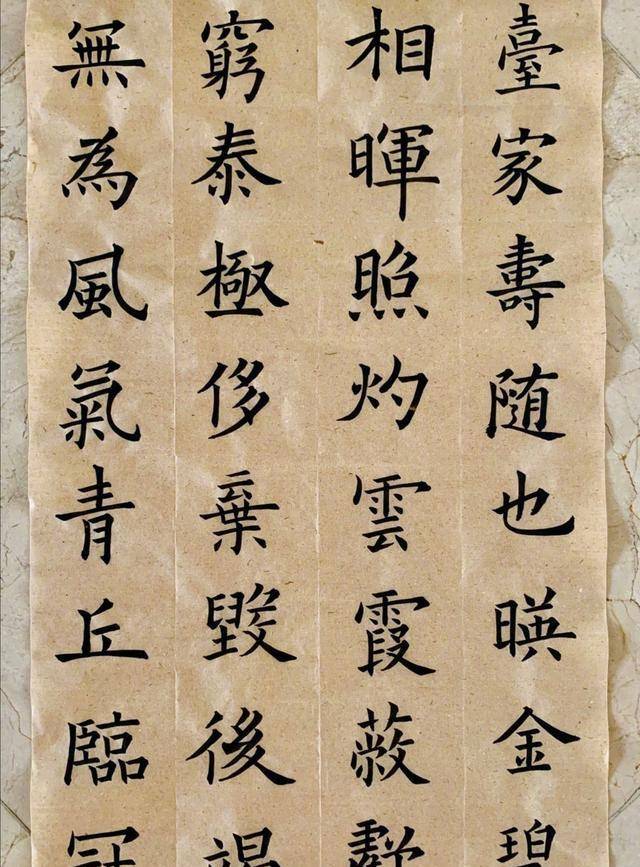 臺家壽随也暎金碧
相暉照灼雲霞蔽虧
窮泰極侈棄毀後
無為風氣青丘臨冠